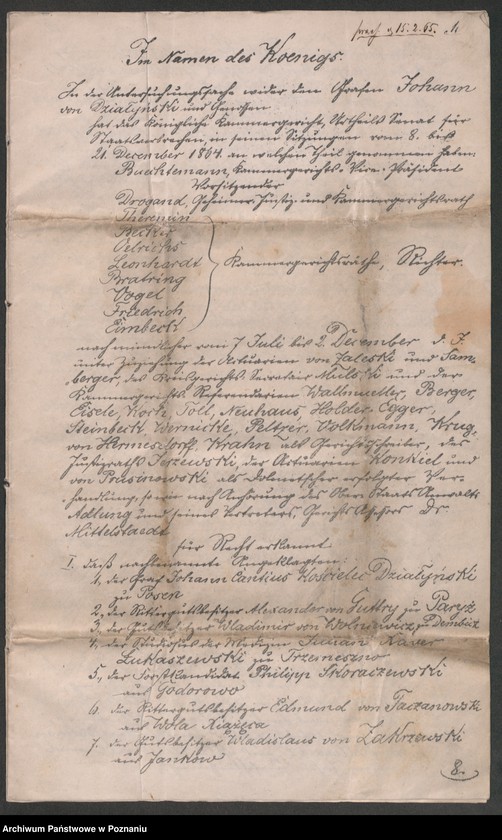 praes. d 15.2.65. 
Im Namen des Koenigs.
In der Untersuchungssache wider den Grafen Johann
von Dzialyński und Genossen
hat das Königliche Kammergericht, Urtheils Senat für
Staatsverbrechen, in seinen Sitzungen vom 8. bis
21. December 1864 an welchen Theil genommen haben:
Buechtemann, Kammergerichts-Vice-Präsident
Vorsitzender
Drogand, Geheimer Justiz- und Kammergerichtsrath
Theremin
Becker
Oelrichs
Leonhardt
Bratring
Vogel
Friedrich
Eimbeck
Kammergerichtsräthe, Richter.
nach mündlicher vom 7 Juli bis 2. December d. J.
unter Zuziehung der Actuarien von Zaleski und Sam-
berger, des Kreisgerichts Secretair und der
Kammergerichts Referendarien Wallmueller, Berger,
Eisele, Koch, Toll, Neuhaus, Holder-Egger,
Steinbeck, Wernicke, Peltzer, Volkmann, Krug,
von Hermesdorf, Krahn als Gerichtsschreiber, des
Justizraths Jerzewski, der Actuarien Konkiel und
von Prusinowski als Dolmetscher erfolgter Ver-
handlung, so wie nach Anhörung des Ober-Staats-Anwalts
Adlung und seines Vertreters, Gerichts Assessors Dr.
Mittelstaedt
für Recht erkannt:
I. daß nachbenannte Angeklagten:
1, der Graf Johann Cantius Kościelec Dzialyński
zu Posen
2, der Rittergutsbesitzer Alexander von Guttry zu Paryż
3, der Gutsbesitzer Wladimir von Wolniewicz, zu Dembicz
4, der Studiosus der Medizin Julian Xaver
Lukaszewski zu Trzemeszno
5, der Forstkandidat Philipp Skoraczewski
aus Godorowo
6, der Rittergutsbesitzer Edmund von Taczanowski
aus Wola Xiażęca
7, der Gutsbesitzer Wladislaus von Zakrzewski
aus Jankow
8.
Archiwum Państwowe w Poznaniu